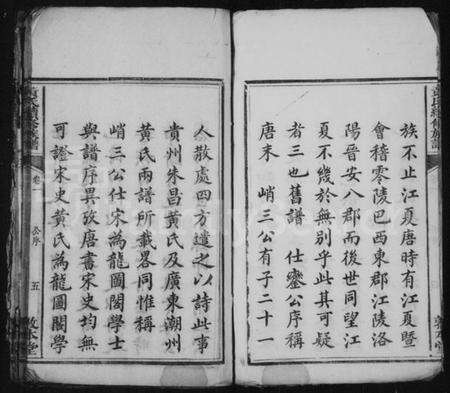 族不止江夏唐時有江夏暨
會稽零陵巴西東郡江陵洛
陽晉安八郡而後世同望江
夏不幾於無别乎此其可疑
者三也舊譜 仕鑾公序稱
唐末 峭三公有子二十一
人散處四方遣之以詩此事
貴州朱昌黄氏及廣東潮州
黄氏兩譜所載畧同惟稱
峭三公仕宋為龍圖閣學士
與譜序異攷唐書宋史均無
可證宋史黄氏為龍圖閣學
卷一
公序
五
敦本堂